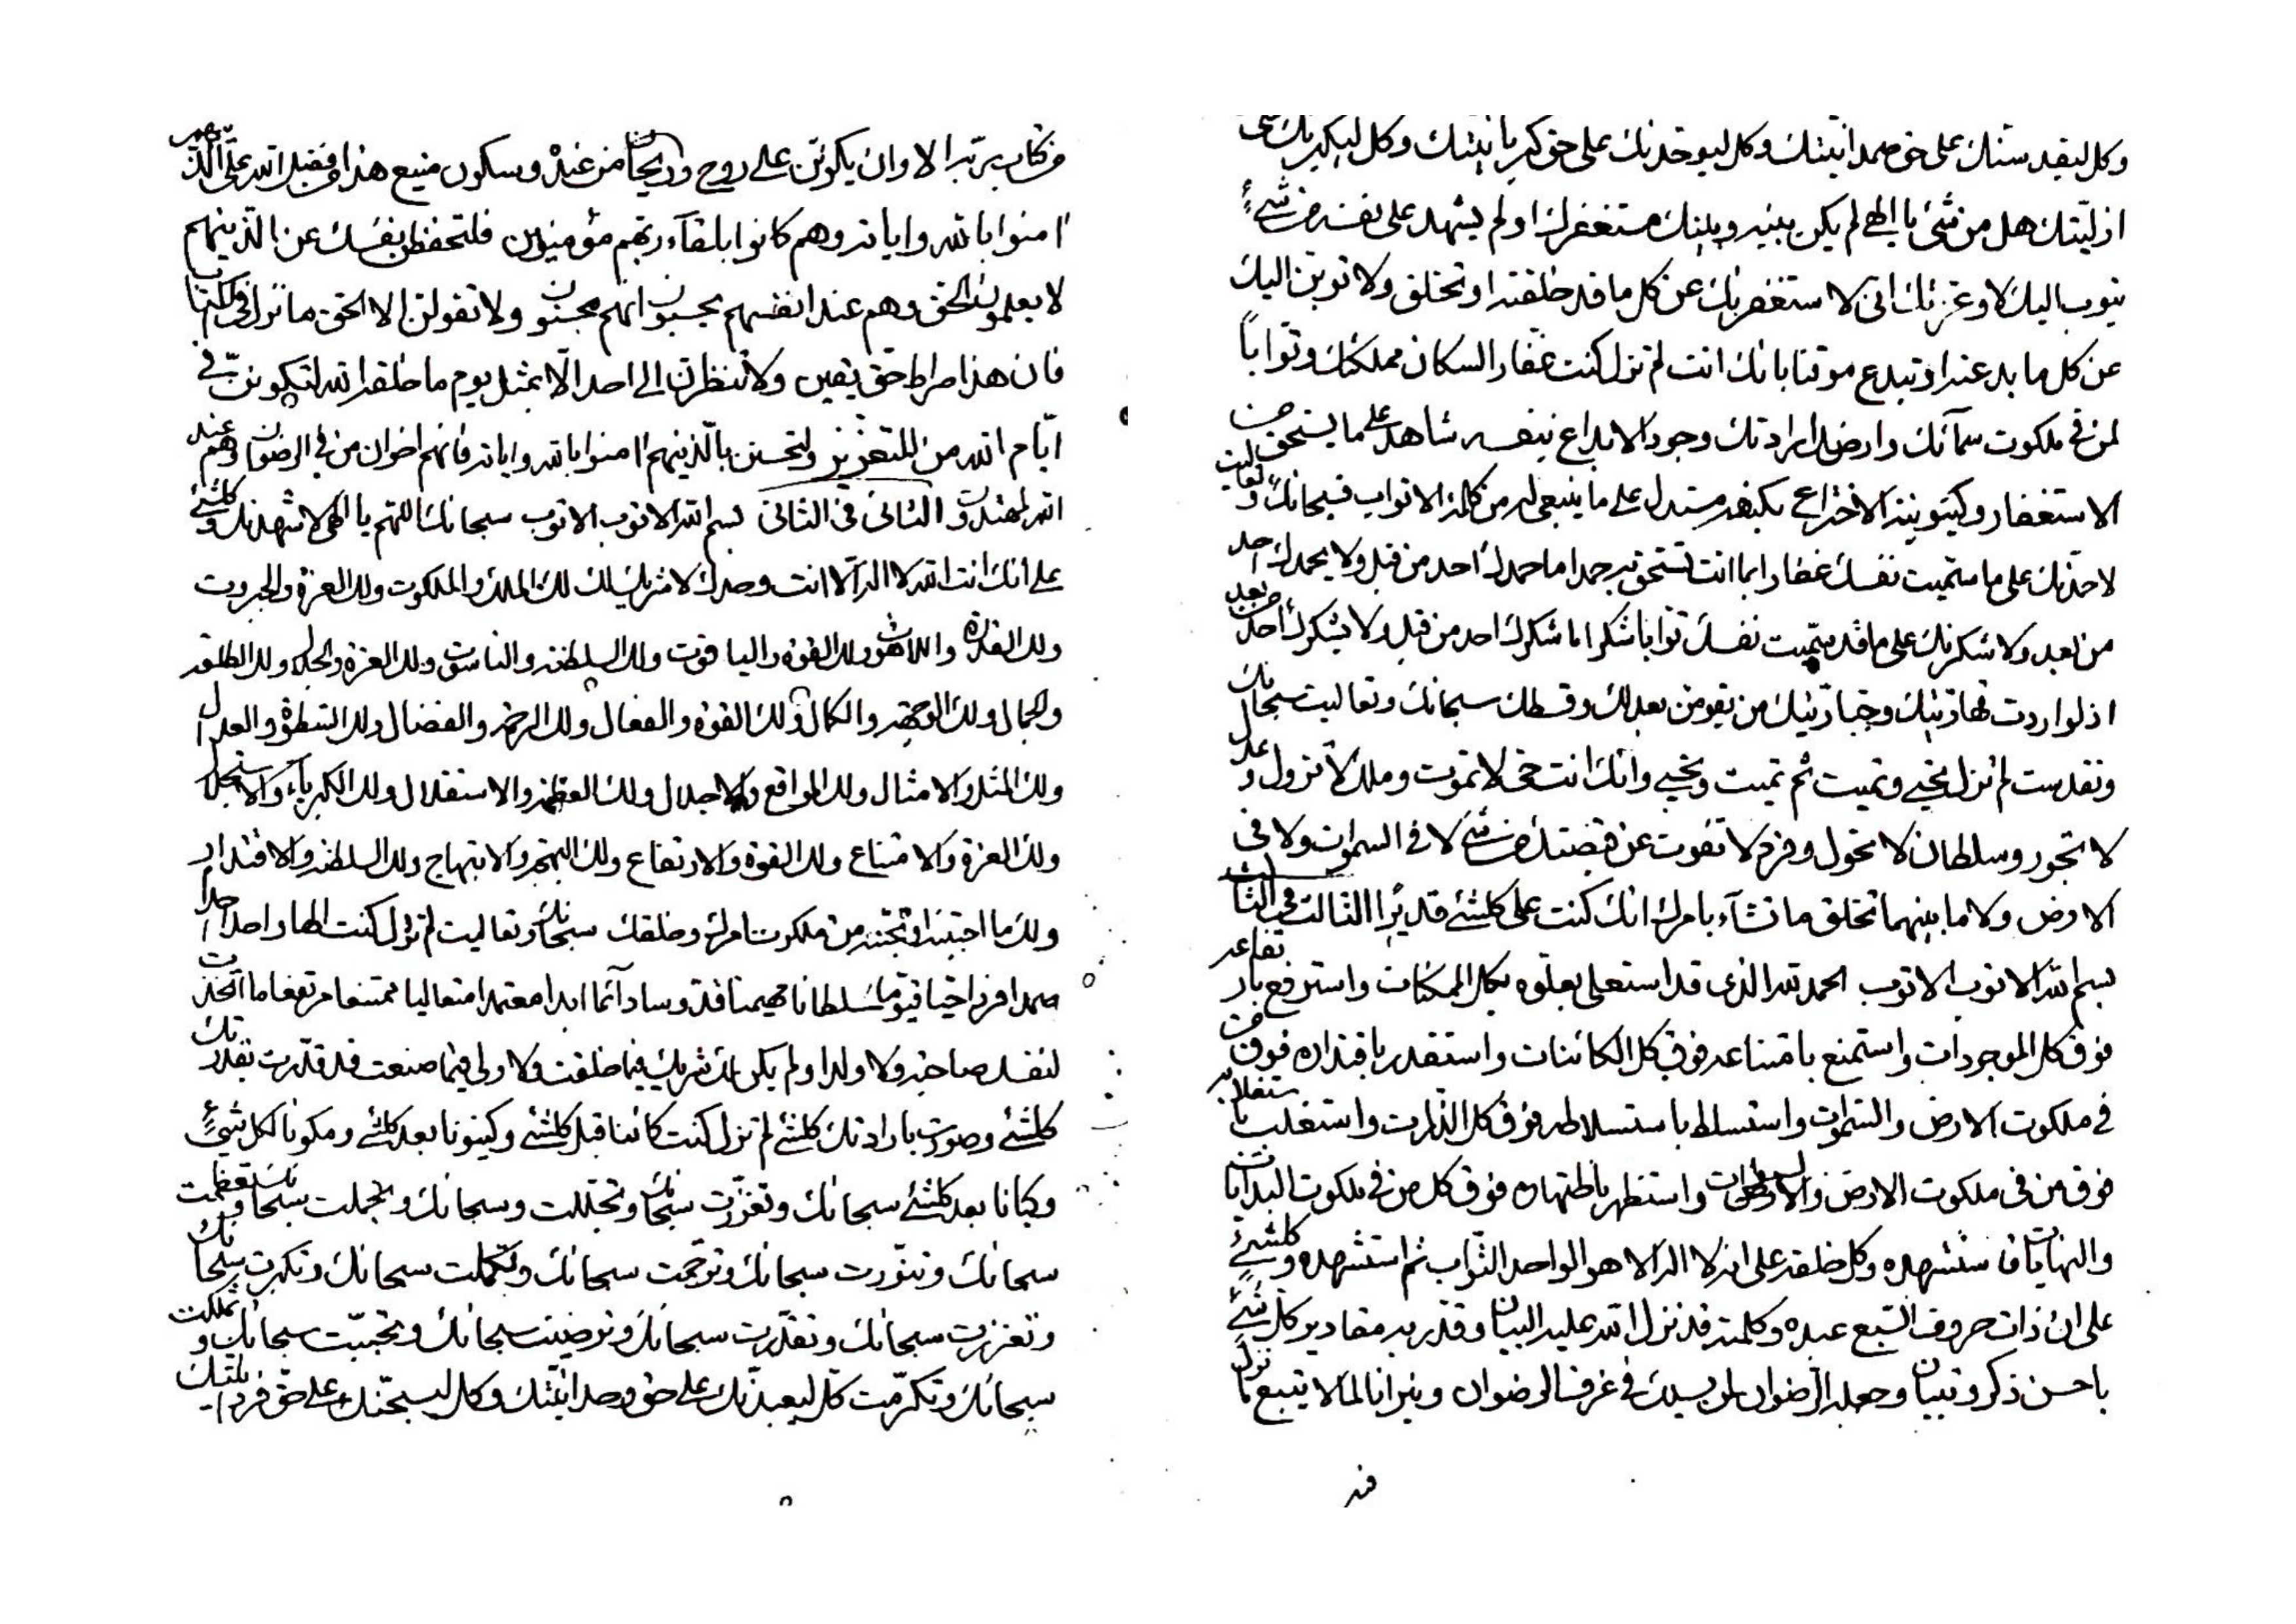 من كان بربه الا وان يكونن على روح وريحان من عنده وسكون منيع هذا من فضل الله على الذينهم
امنوا بالله واياته وهم كانوا بلقاء ربهم مؤمنون فلتحفظن نفسك عن الذينهم
لا يعلمون الحق وهم عند انفسهم يحسبون انهم محسنون ولا تقولن الا الحق ما نزل في الكتاب
فان هذا صراط حق يقين ولا تنظرن الى احد الا بمثل يوم ما خلقه الله لتكونن في
ايام الله من المتعززين ولتحسنن بالذينهم امنوا بالله واياته فانهم اخوان من في الرضوان وهم عند
الله لمهتدون الثانى فى الثانى بسم الله الاتوب الاتوب سبحانك اللهم يا الهى لاشهدنك وكلشئ
على انك انت الله لا اله الا انت وحدك لا شريك لك لك الملك والملكوت ولك العزة والجبروت
ولك القدرة واللاهوت ولك القوة والياقوت ولك السلطنة والناسوت ولك العزة والجلال ولك الطلعة
والجمال ولك الوجهة والكمال ولك القوة والفعال ولك الرحمة والفضال ولك السطوة والعدال
ولك المثل والامثال ولك المواقع والاجلال ولك العظمة والاستقلال ولك الكبرياء والاستجلال
ولك العزة والامتناع ولك القوة والارتفاع ولك البهجة والابتهاج ولك السلطنة والاقتدار
ولك ما احببته او تحبنه من ملكوت امرك وخلقك سبحانك وتعاليت لم تزل كنت الها واحدا احدا
صمدا فردا حيا قيوما سلطانا مهيمنا قدوسا دائما ابدا معتمدا متعاليا ممتنعا مرتفعا ما اتخذت
لنفسك صاحبة ولا ولدا ولم يكن لك شريك فيما خلقت ولا ولى فيما صنعت قد قدرت بقدرتك
كلشئ وصورت بارادتك كلشئ لم تزل كنت كائنا قبل كلشئ وكينونا بعد كلشئ ومكونا لكل شئ
وكيانا بعد كلشئ سبحانك وتعززت سبحانك وتجللت وسبحانك وتجملت سبحانك وتعظمت
سبحانك وتنورت سبحانك وترحمت سبحانك وتكملت سبحانك وتكبرت سبحانك
وتعززت سبحانك وتقدرت سبحانك وترضيت سبحانك وتحببت سبحانك وتملكت
سبحانك وتكرمت كل ليعبدنك على حق وحدانيتك وكل ليسبحنك على حق فردانيتك
وكل ليقدسنك على حق صمدانيتك وكل ليوحدنك على حق كبريائيتك وكل ليكبرنك على
ازليتك هل من شئ يا الهى لم يكن بينه وبينك مستغفر لك او لم يشهد على نفسه من شئ
يتوب اليك لا وعزتك انى لاستغفرنك عن كل ما قد خلقته او تخلق ولا توبن اليك
عن كل ما بدعته او تبدع موقنا بانك انت لم تزل كنت غفار السكان مملكتك وتوابا
لمن فى ملكوت سمائك وارضك ارادتك وجود الابداع بنفسه شاهد على ما يستحق من
الاستغفار وكينونية الاختراع بكنهه مستدل على ما ينبغى له من كلمة الاتواب فسبحانك وتعاليت
لاحمدنك على ما سميت نفسك غفارا بما انت تستحق به حمدا ما حمدك احد من قبل ولا يحمدك احد
من بعد ولاشكرنك على ما قد سميت نفسك توابا شكرا ما شكرك احد من قبل ولا يشكرك احد من بعد
اذ لو اردت قهاريتك وجباريتك من يقومن بعدلك وقسطك سبحانك وتعاليت سبحانك
وتقدست لم تزل تحيى وتميت ثم تميت وتحيى وانك انت حى لا تموت وملك لا تزول وعدل
لا تجور وسلطان لا تحول وفرد لا تفوت عن قبضتك من شئ لا فى السموات ولا فى
الارض ولا ما بينهما تخلق ما تشاء بامرك انك كنت على كلشئ قديرا الثالث فى الثانى
بسم الله الاتوب الاتوب الحمد لله الذى قد استعلى بعلوه كل الممكنات واسترفع بارتفاعه
فوق كل الموجودات واستمنع بامتناعه فوق كل الكائنات واستقدر باقتداره فوق من
فى ملكوت الارض والسموات واستسلط باستسلاطه فوق كل الذرات واستغلب باستغلابه
فوق من فى ملكوت الارض والسموات واستظهر باظهاره فوق كل من فى ملكوت البدايات
والنهايات فاستشهده وكل خلقه على انه لا اله الا هو الواحد التواب ثم استشهده وكلشئ
على ان ذات حروف السبع عبده وكلمته قد نزل الله عليه البيان وقدر به مقادير كل شئ
باحسن ذكر وتبيان وجعله الرضوان لمن يسلك فى غرف الرضوان ونيرانا لما لا يتبع ما نزل